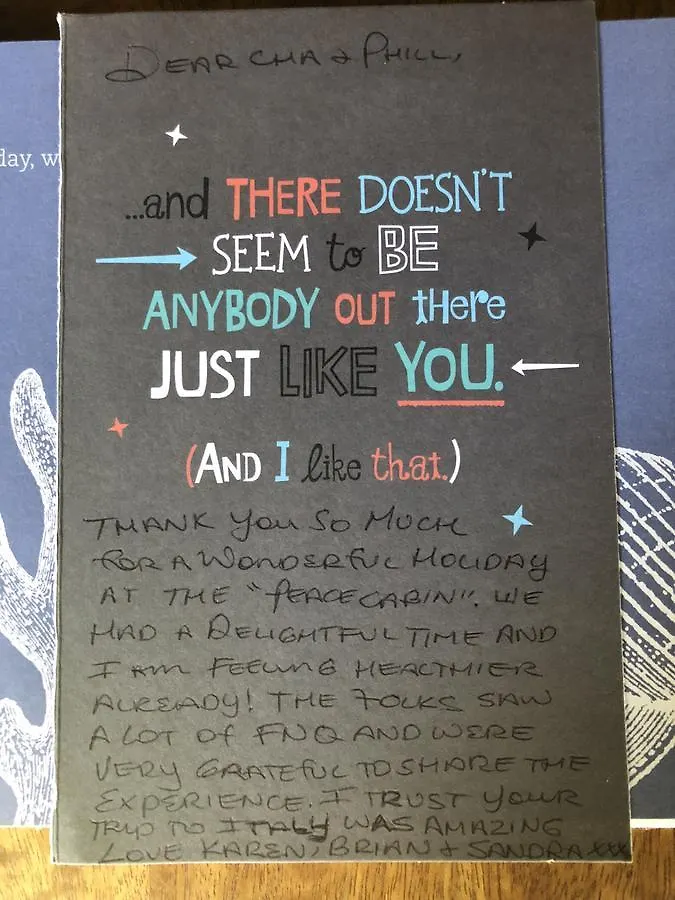 DEAR CHA & PHILL,
day, w
...and THERE DOESN'T
SEEM to BE
ANYBODY OUT tHere
JUST LIKE YOU.
(AND I like that.)
THANK You So MUCH
FOR A WONDERFUL HOLIDAY
AT THE "PEACE CABIN". WE
HAD A DELIGHTFUL TIME AND
I AM FEELING HEALTHIER
ALREADY! THE FOLKS SAW
A LOT OF FNQ AND WERE
VERY GRATEFUL TO SHARE THE
EXPERIENCE. I TRUST YOUR
TRIP TO ITALY WAS AMAZING
LOVE KAREN, BRIAN & SANDRA xxx